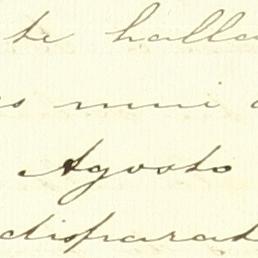 te halla
s mui
Agosto
disparad